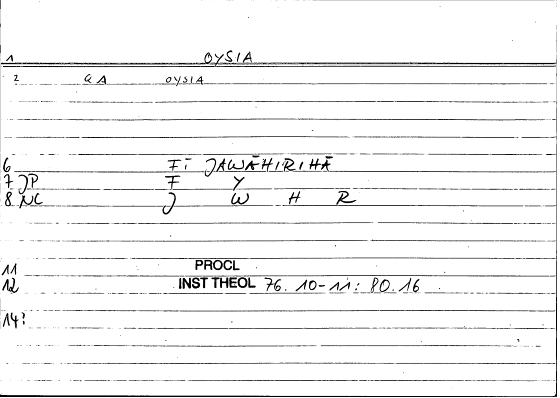 1 OYSIA
2 GA OYSIA
6 FĪ JAWĀHIRIHĀ
7 JP F Y
8 NC J W H R
11 PROCL
12 INST THEOL 76.10-11: 80.16
14?